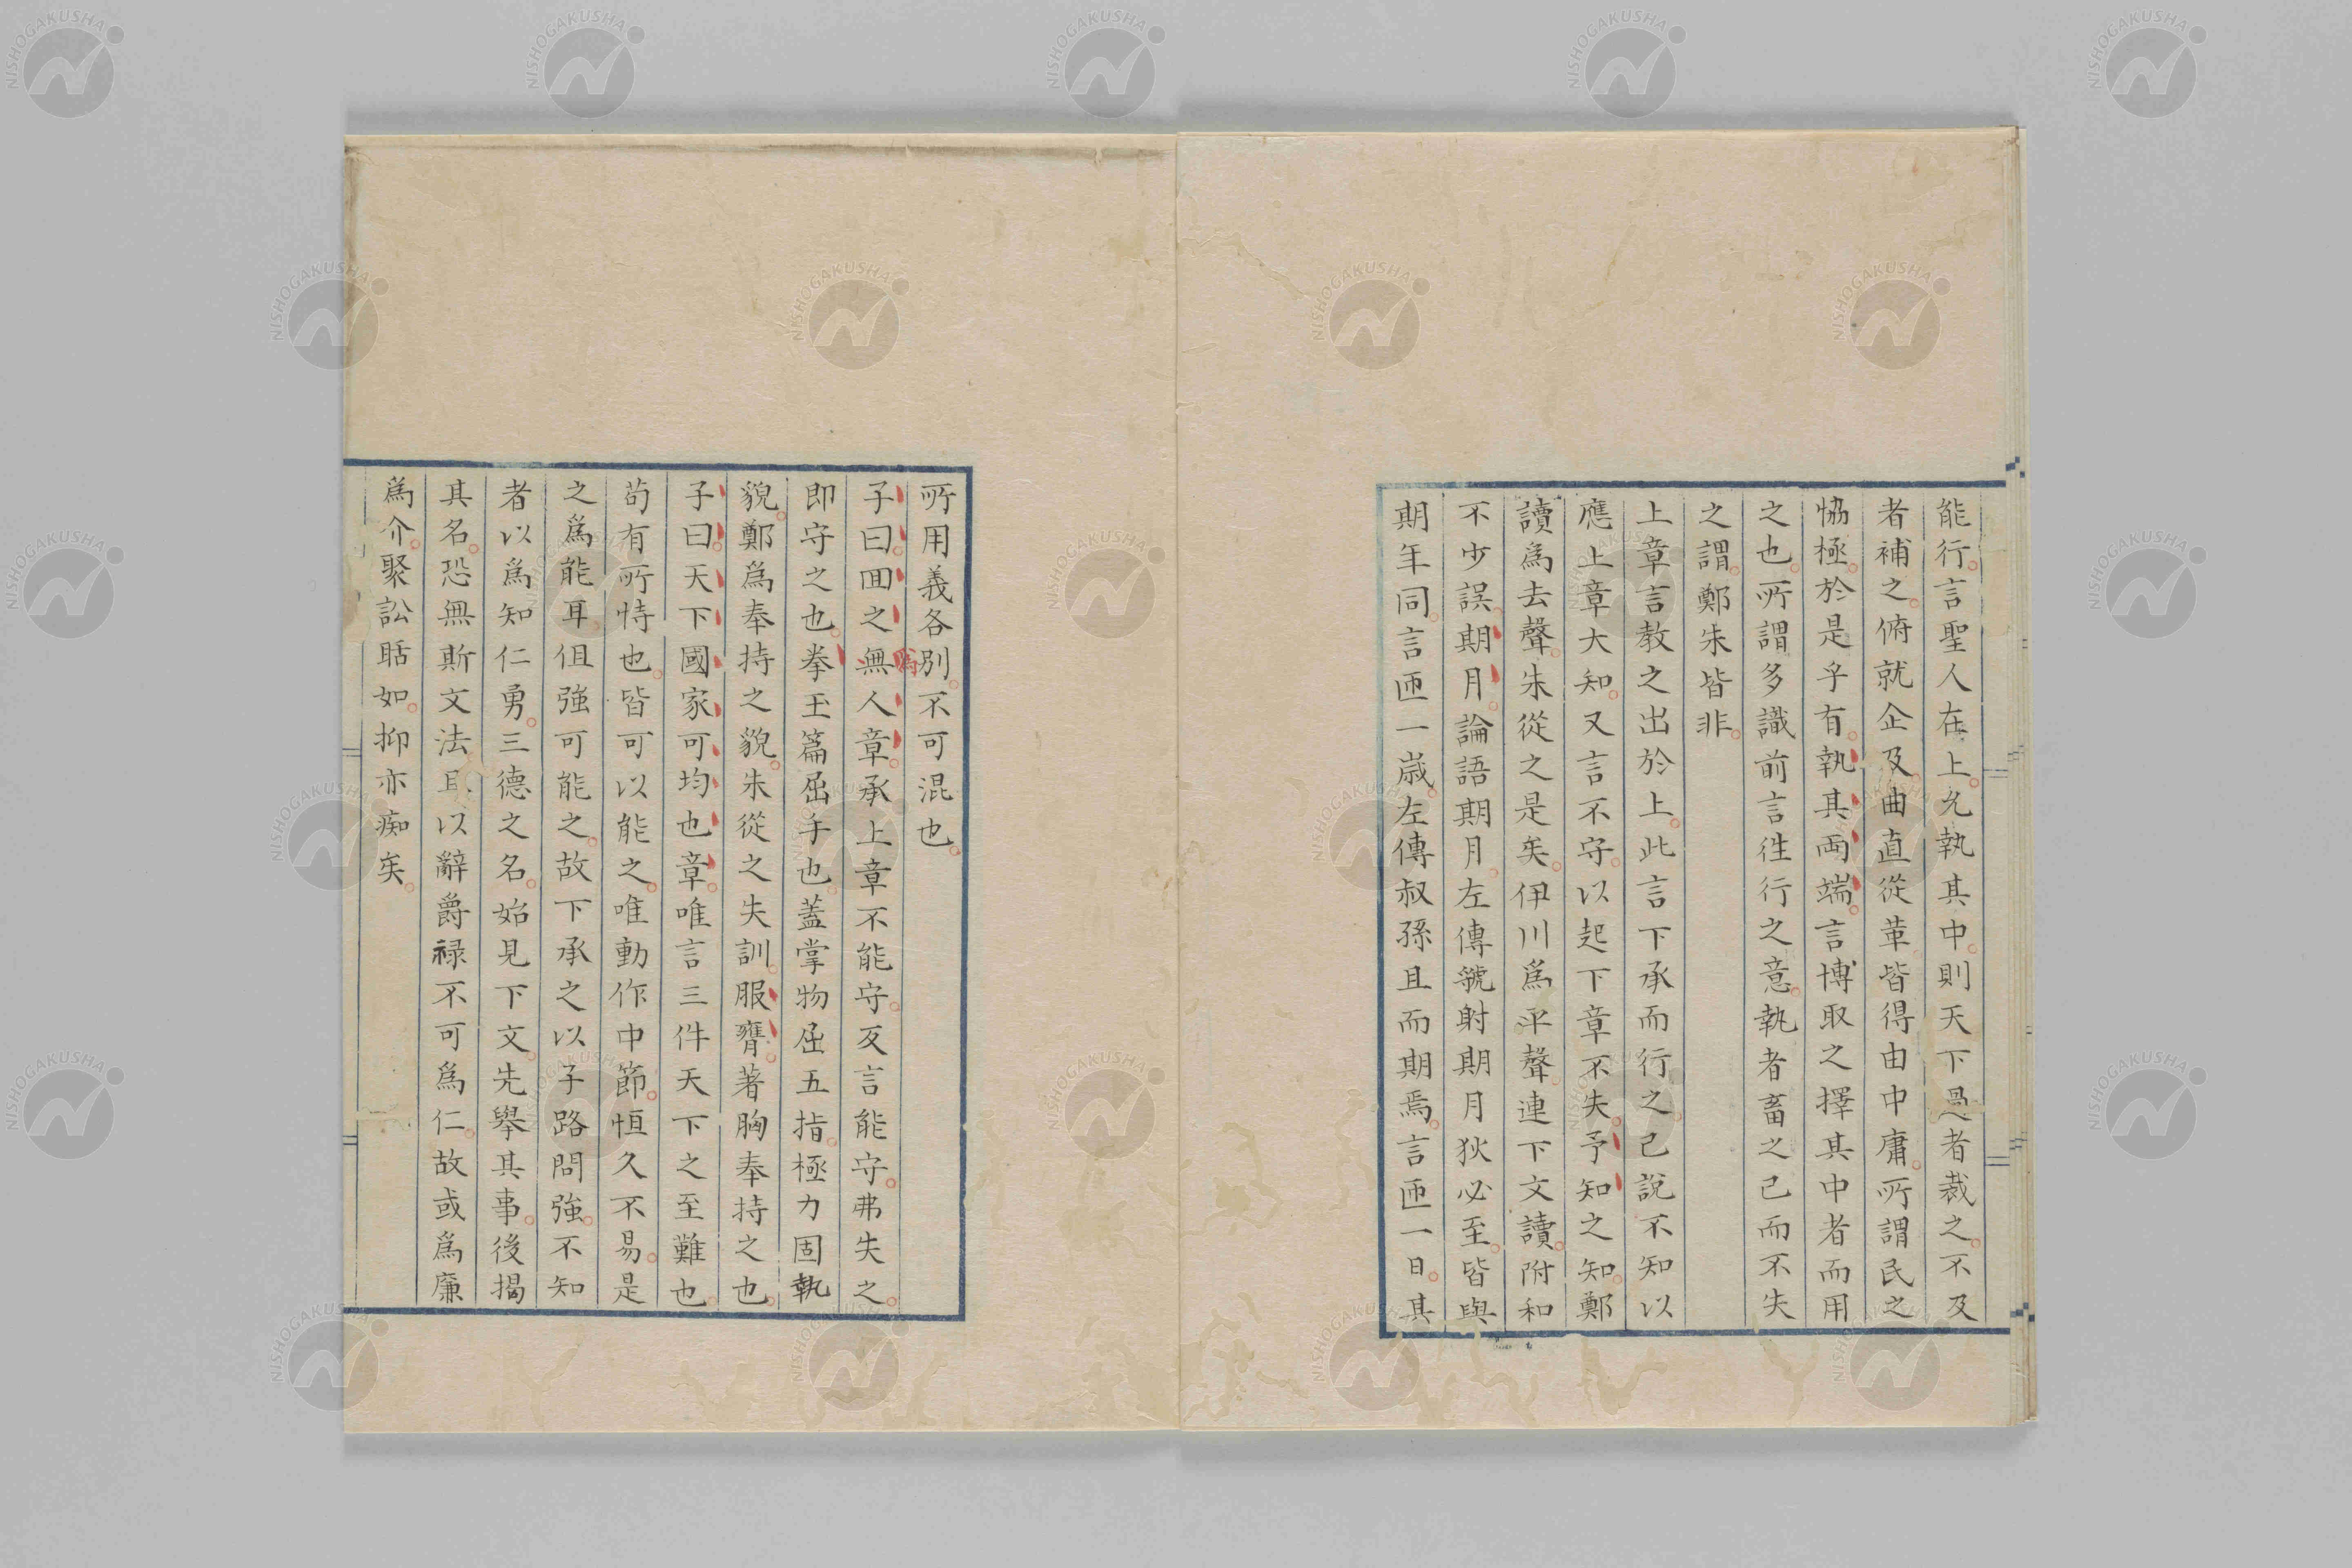 能行言聖人在上允執其中則天下過者裁之不及
者補之俯就企及曲直從革皆得由中庸所謂民之
恊極於是乎有執其兩端言博取之擇其中者而用
之也所謂多識前言往行之意執者畜之己而不失
之謂鄭朱皆非
上章言教之出於上此言下承而行之己說不知以
應上章大知又言不守以起下章不失予知之知鄭
讀爲去聲朱從之是矣伊川爲平聲連下文讀附和
不少誤期月論語期月左傳虢射期月狄必至皆與
期年同言匝一歲左傳叔孫旦而期焉言匝一日其
所用義各別不可混也
子曰回之爲人章承上章不能守反言能守弗失之
即守之也拳玉篇屈手也蓋掌物屈五指極力固執
貌鄭爲奉持之貌朱從之失訓服膺著胸奉持之也
子曰天下國家可均也章唯言三件天下之至難也
苟有所恃也皆可以能之唯動作中節恒久不易是
之爲能耳但強可能之故下承之以子路問強不知
者以爲知仁勇三德之名始見下文先舉其事後揭
其名恐無斯文法且以辭爵祿不可爲仁故或爲廉
爲介聚訟聒如抑亦痴矣
NISHOGAKUSHA